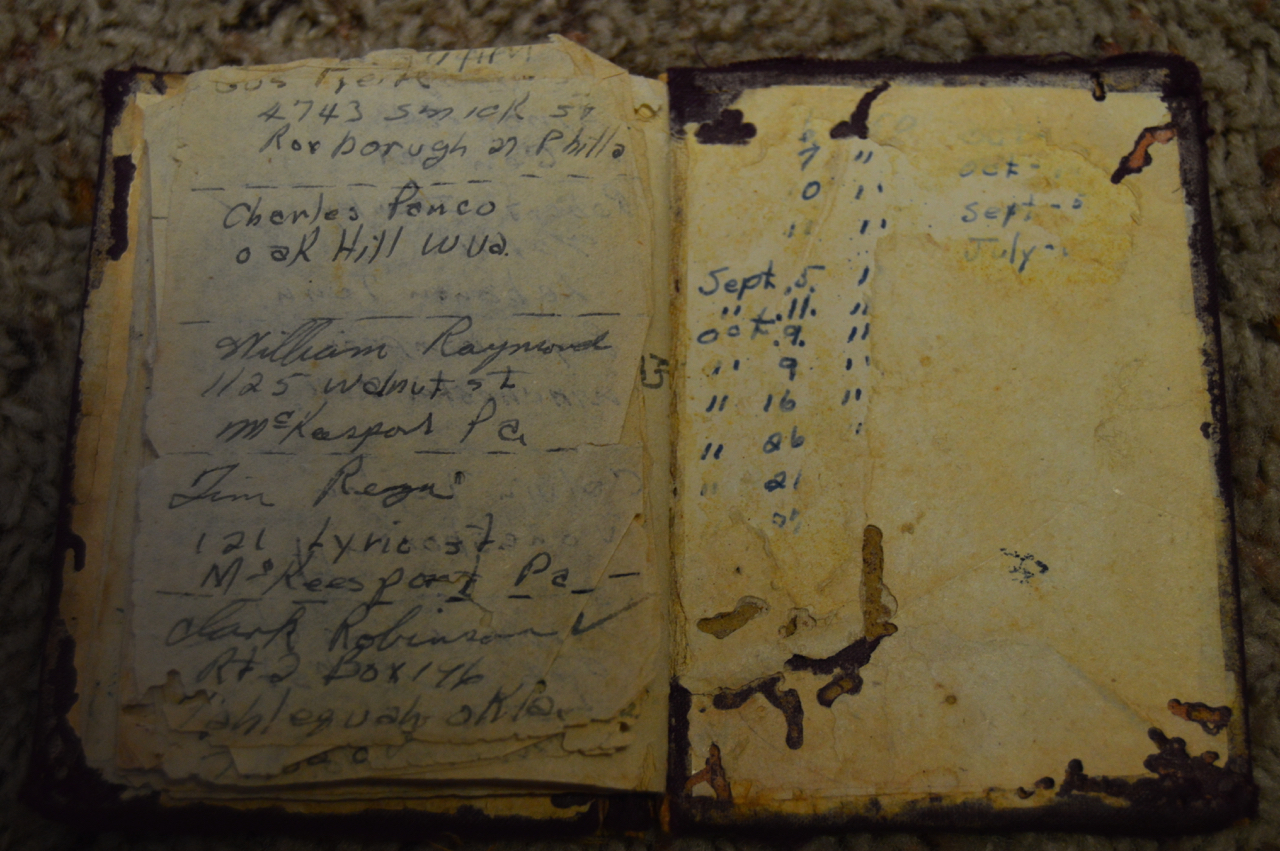 4743 Smick St
Roxborough 27 Phila
Charles Panco
Oak Hill W Va.
William Raymond
1125 Walnut St
McKesport Pa
Jim
121 Lyric St
McKeesport Pa
Clark Robinson ✓
Rt 2 Box 176
Tahlequah Okla.
7 "
0 "
" "
Sept. 5. "
" 11. "
Oct. 9. "
" 9 "
" 16 "
" 26 "
" 21
Oct -
Sept - 5
July -